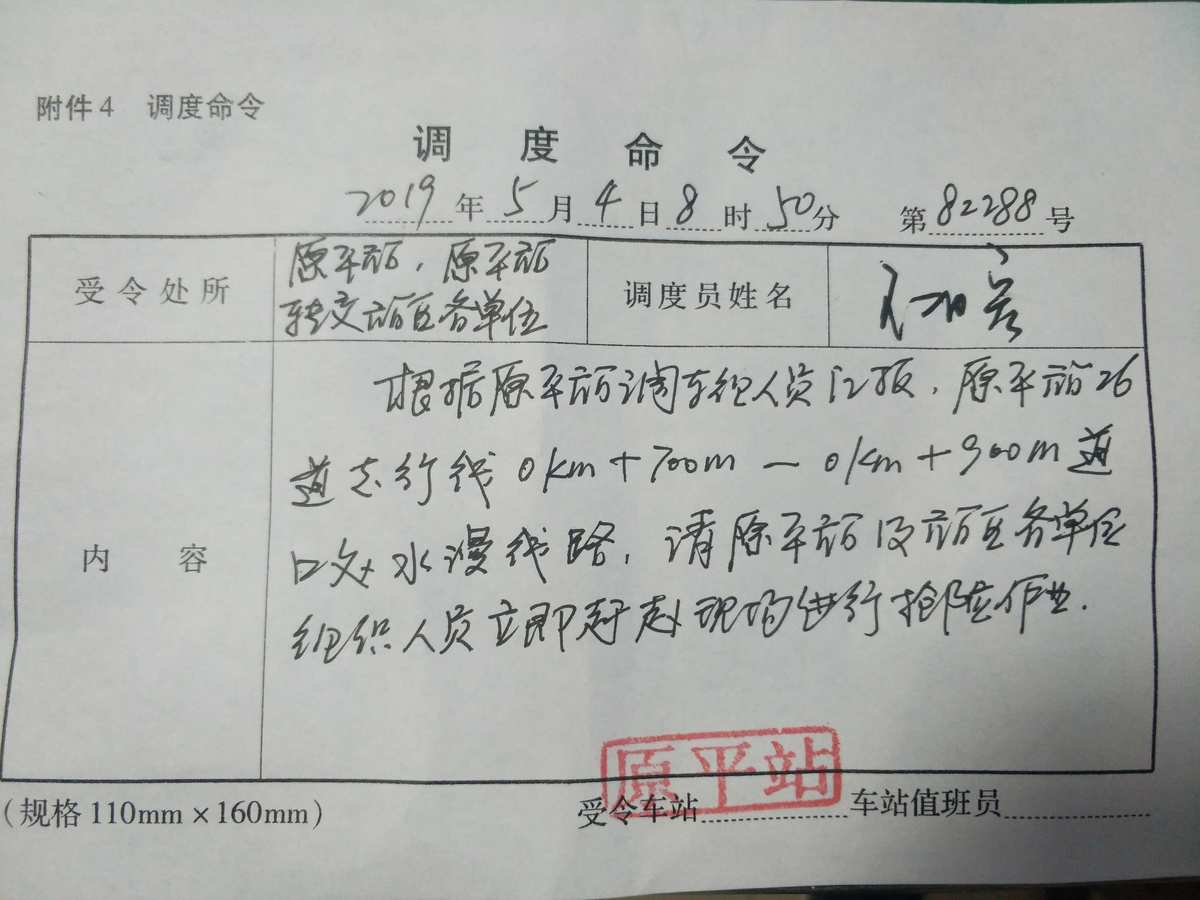 附件4 调度命令
调度命令
2019年5月4日8时50分 第82288号
受令处所 原平站，原平站
转交站区各单位
调度员姓名
内容
根据原平站调车组人员汇报，原平站26
道走行线0km+700m－0km+900m道
口处水漫线路，请原平站及站区各单位
组织人员立即赶赴现场进行抢险作业．
原平站
(规格110mm×160mm) 受令车站 车站值班员